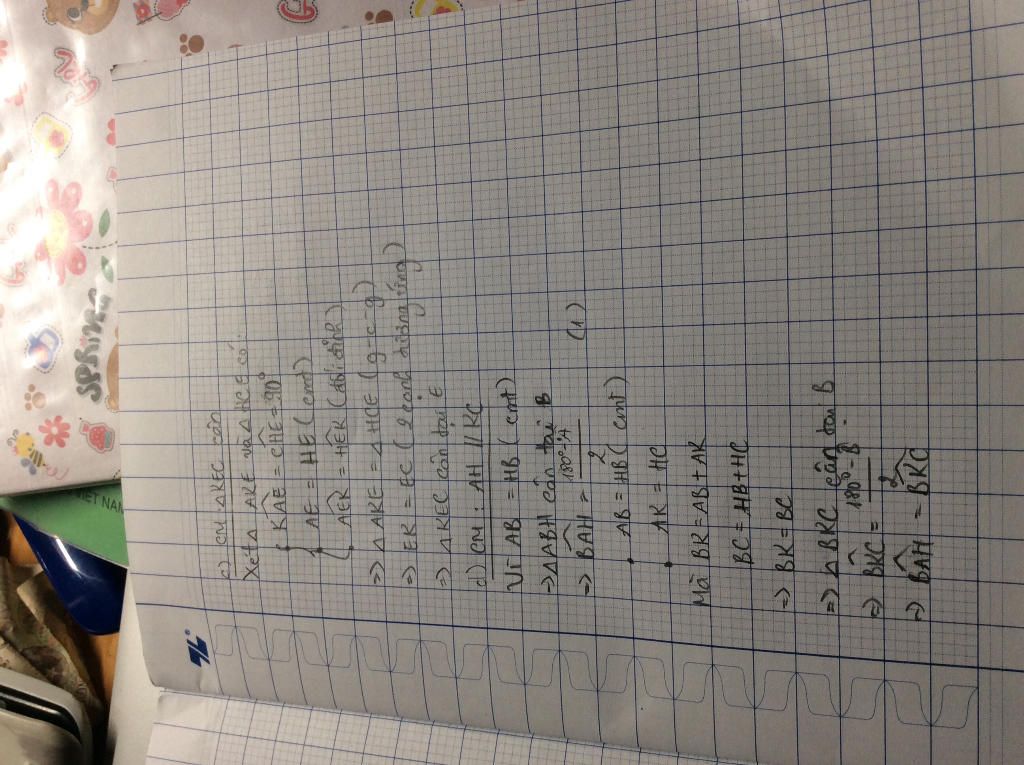 c) CM: ΔKEC cân
Xét Δ AKE và Δ HCE có:
KÂE = CĤE = 90°
AE = HE (cmt)
AÊK = HÊK (đối đỉnh)
=> Δ AKE = Δ HCE (g-c-g)
=> EK = EC (2 cạnh tương ứng)
=> Δ KEC cân tại E
d) CM: AH // KC
Vì AB = HB (cmt)
-> Δ ABH cân tại B
=> BÂH = 180° - / 2 (1)
• AB = HB (cmt)
• AK = HC
Mà BK = AB + AK
BC = HB + HC
=> BK = BC
=> Δ BKC cân tại B
=> BK̂C = 180° - B / 2
=> BÂH = BK̂C
SPRING
VIỆT NAM